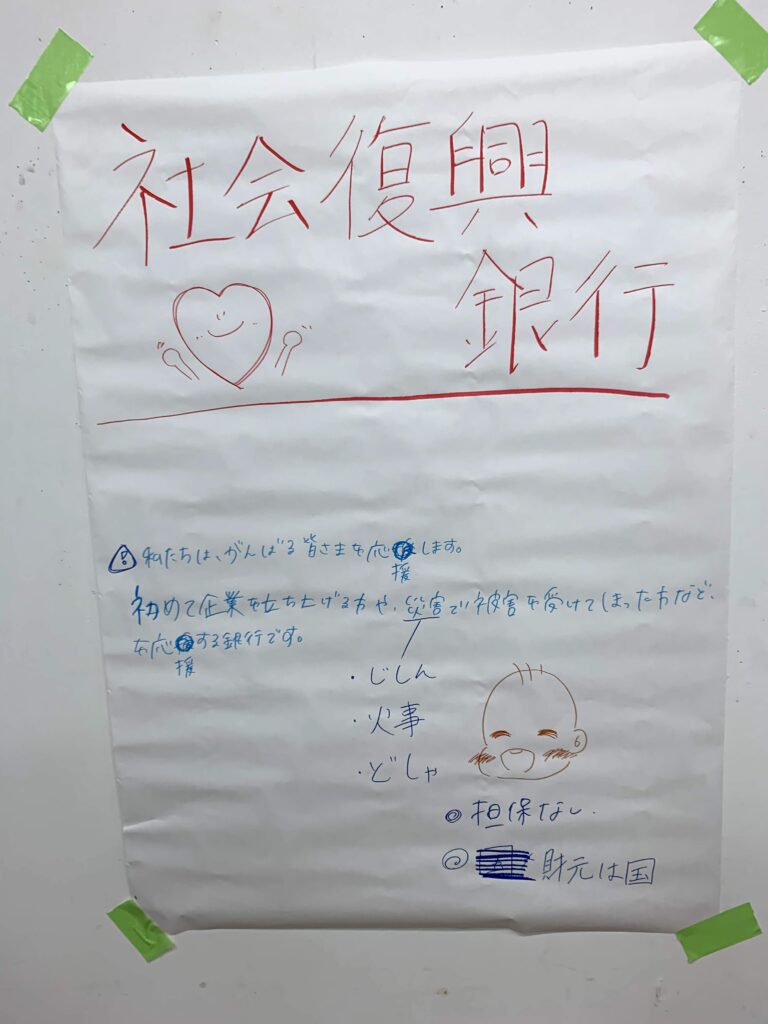 社会復興
銀行
私たちは、がんばる皆さまを応援します。
初めて企業を立ち上げる方や、災害で被害を受けてしまった方など、
を応援する銀行です。
・じしん
・火事
・どしゃ
◎担保なし.
◎財元は国